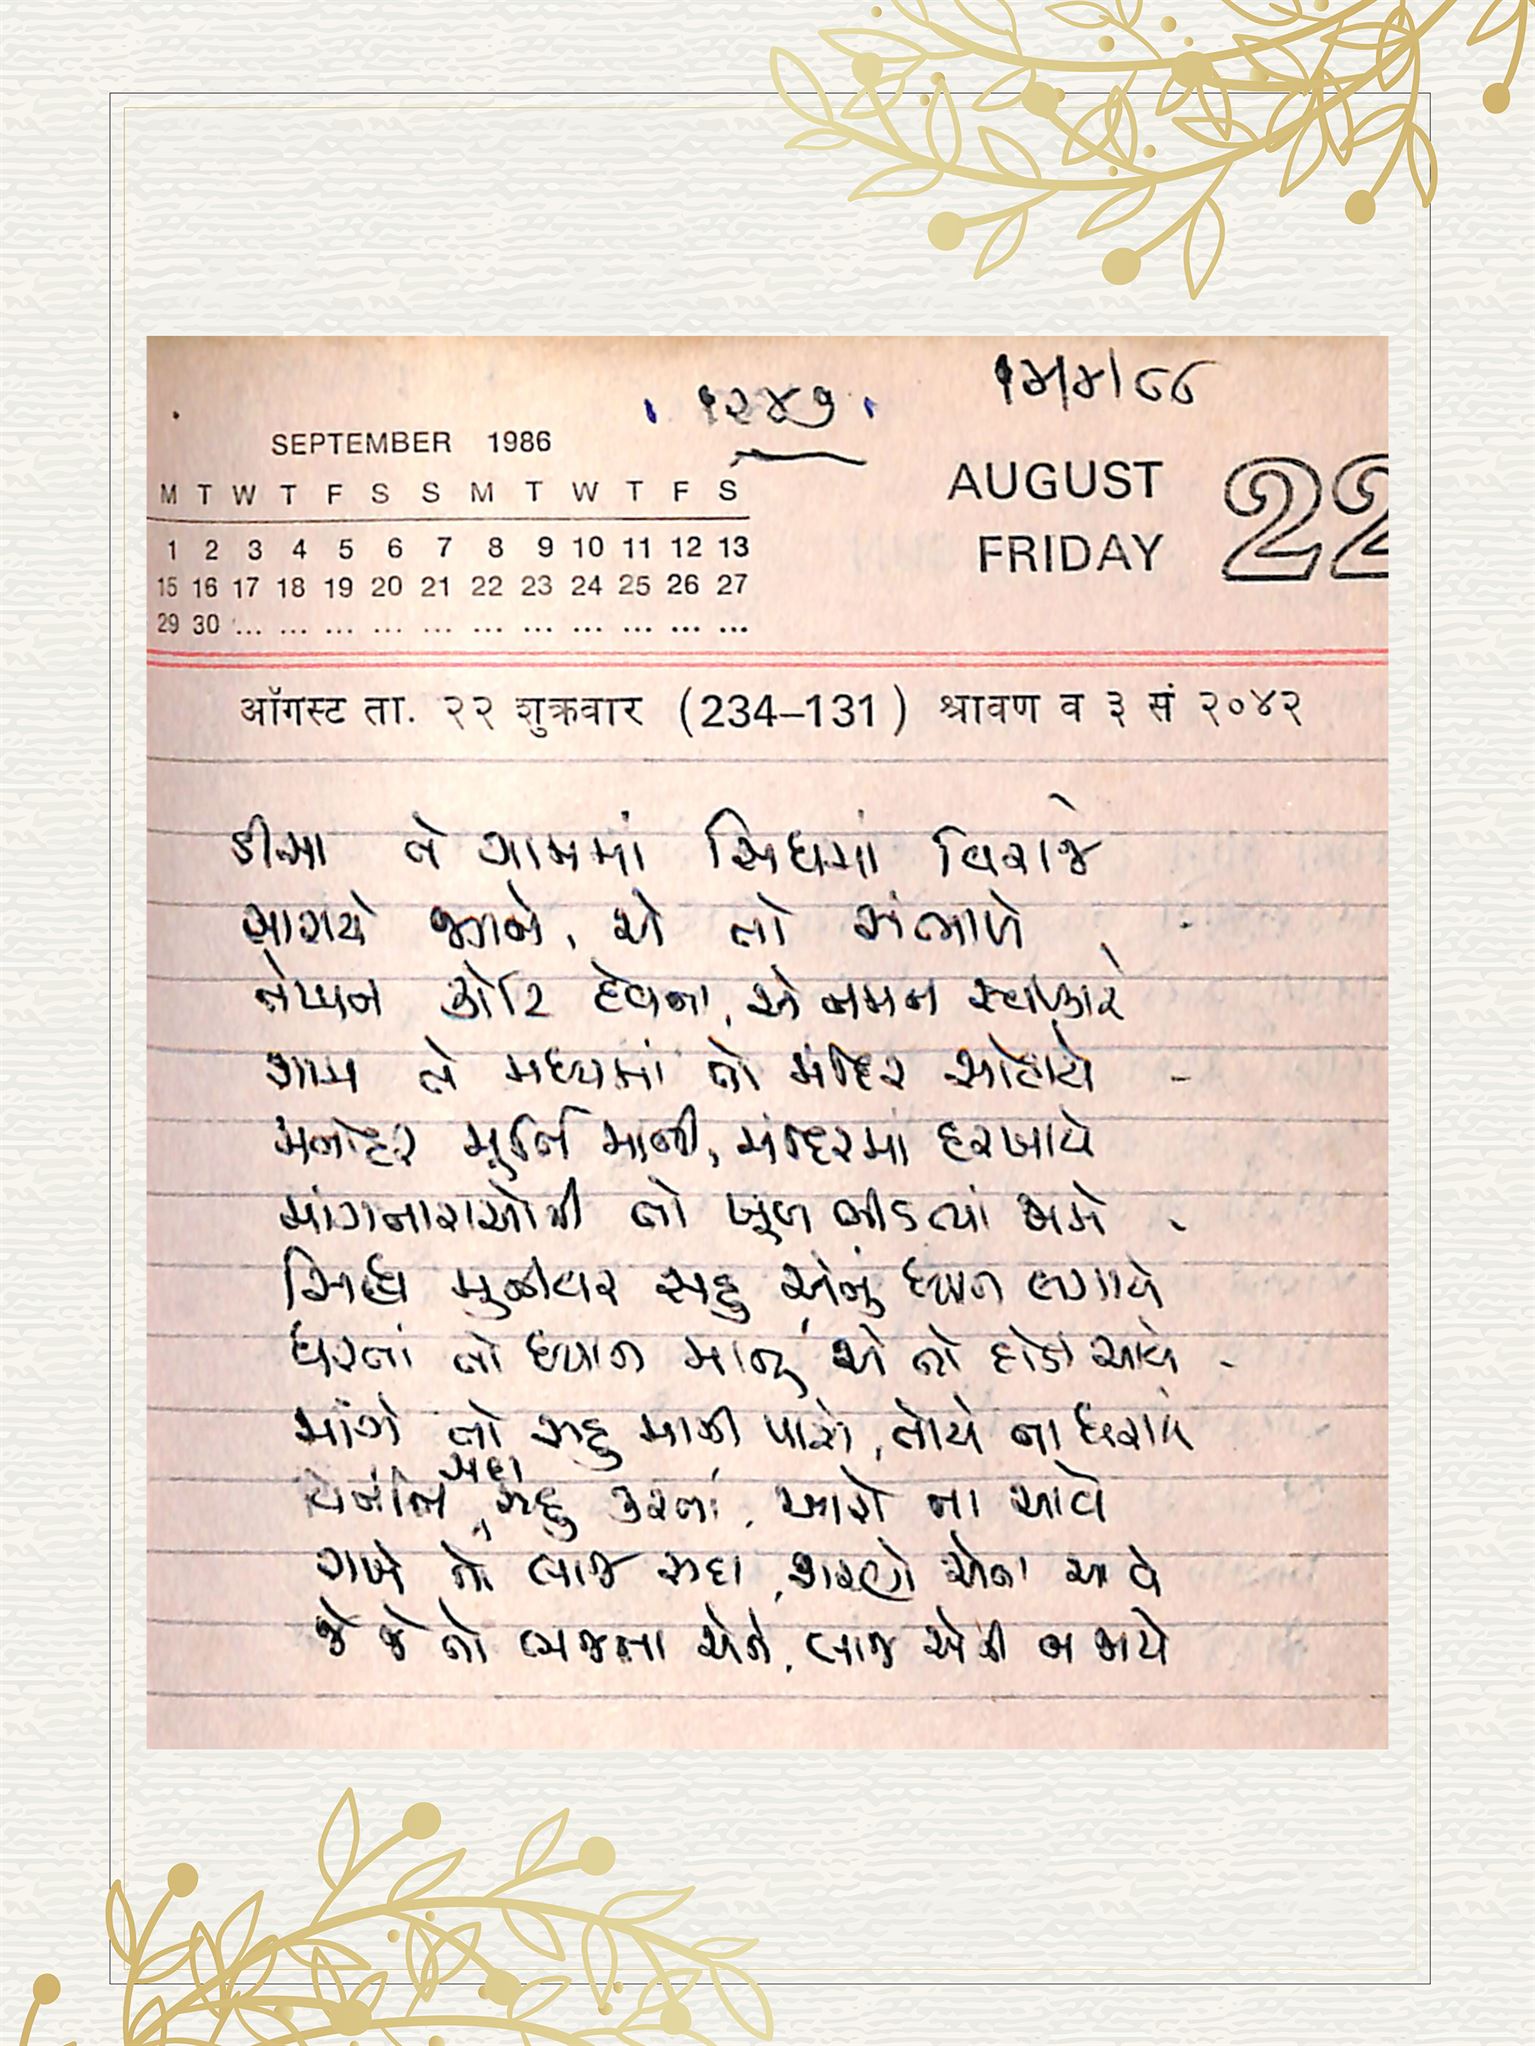 ૧૪/૪/૮૮
૧૨૪૭
SEPTEMBER 1986
M T W T F S S M T W T F S
1 2 3 4 5 6 7 8 9 10 11 12 13
15 16 17 18 19 20 21 22 23 24 25 26 27
29 30 ... ... ... ... ... ... ... ... ... ... ...
AUGUST
FRIDAY
22
ऑगस्ट ता. २२ शुक्रवार (234–131) श्रावण व ३ सं २०४२
ડીસા તે ગામમાં સિધમાં વિરાજે
તો સંભાળે
તેપ્પન કોટિ દેવના, એ નમન સ્વીકારે
ગામ તે મધ્યમાં તો મંદિર સોહાયે
મનોહર મૂર્તિ માની, મંદિરમાં હરખાયે
માંગનારાઓની તો ખૂબ ભીડ ત્યાં જામે
સિધ્ધ મુનીવર સહુ એનું ધ્યાન લગાવે
ધરતાં તો ધ્યાન માનું એ તો દોડી આવે
માંગે તો સહુ માની પાસે, તોયે ના ધરાયે
વિનંતિ સદા સહુ કરતાં, આરો ના આવે
રાખે તો લાજ સદા, શરણે એના આવે
જે જે તો ભજતા એને, લાજ એની ન જાયે